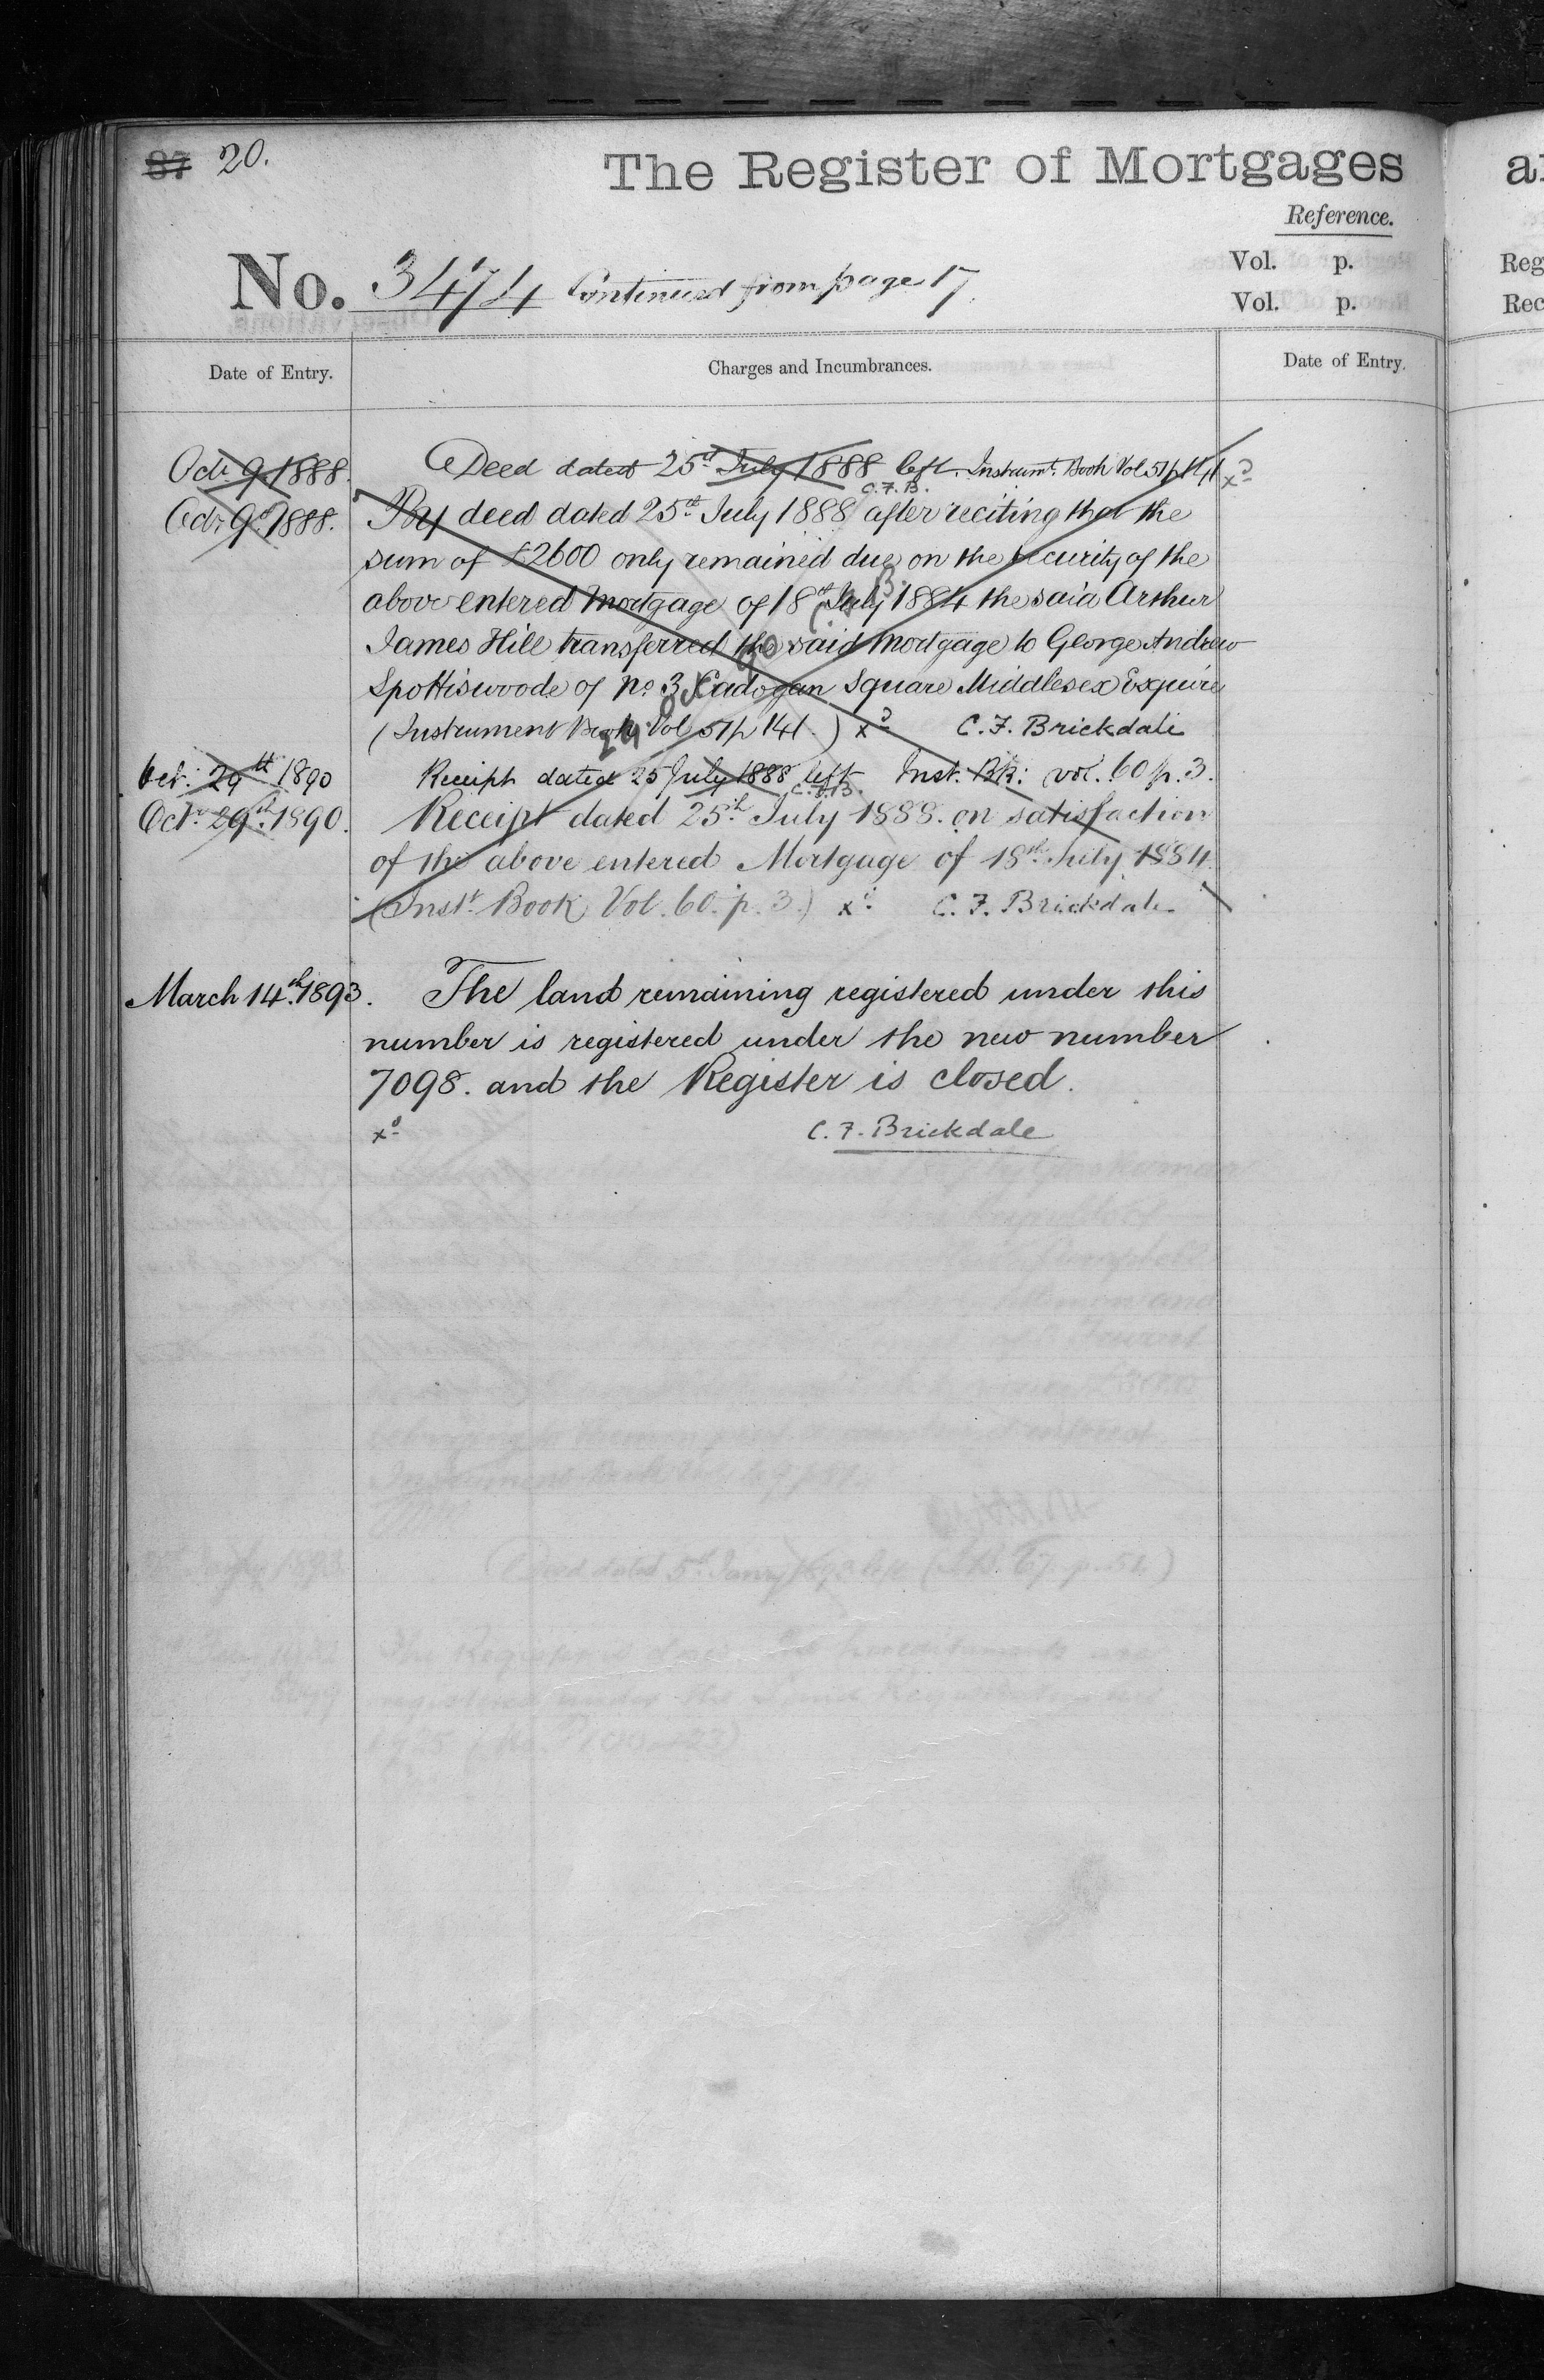 87 20.
The Register of Mortgages
Reference.
No. 3474 Continued from page 17.
Vol. p.
Vol. p.
Date of Entry.
Charges and Incumbrances.
Date of Entry.
Oct. 9 1888. Deed dated 25th July 1888 left. Instrumt. Book Vol 51 p 141 xd
C.F.B.
Oct. 9th 1888. By deed dated 25th July 1888 after reciting that the
sum of £2600 only remained due on the security of the
above entered Mortgage of 18th July 1884 the said Arthur
James Hill transferred the said Mortgage to George Andrew
Spottiswoode of No. 3 Cadogan Square Middlesex Esquire
(Instrument Book Vol 51 p 141.) xd C. F. Brickdale
29 Oct 90 C.F.B.
Oct. 29th 1890 Receipt dated 25 July 1888 left Inst. BK: vol. 60 p. 3.
C.F.B.
Octr. 29th 1890. Receipt dated 25th July 1888. on satisfaction
of the above entered Mortgage of 18th July 1884.
(Instt. Book Vol. 60. p. 3.) xd C. F. Brickdale
March 14th 1893. The land remaining registered under this
number is registered under the new number
7098. and the Register is closed.
xd C. F. Brickdale
a
Reg
Rec